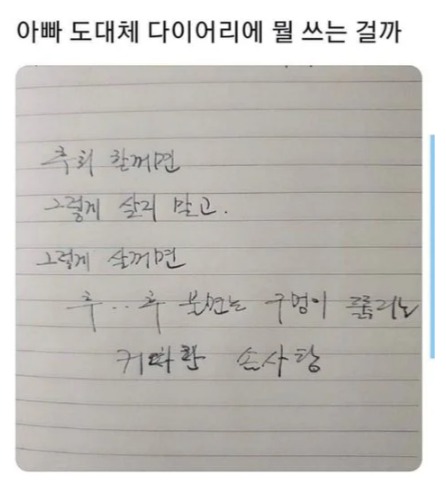 아빠 도대체 다이어리에 뭘 쓰는 걸까
후회 할꺼면
그렇게 살지 말고.
그렇게 살꺼면
후..후 불면는 구멍이 뚫리는
커따란 솜사탕